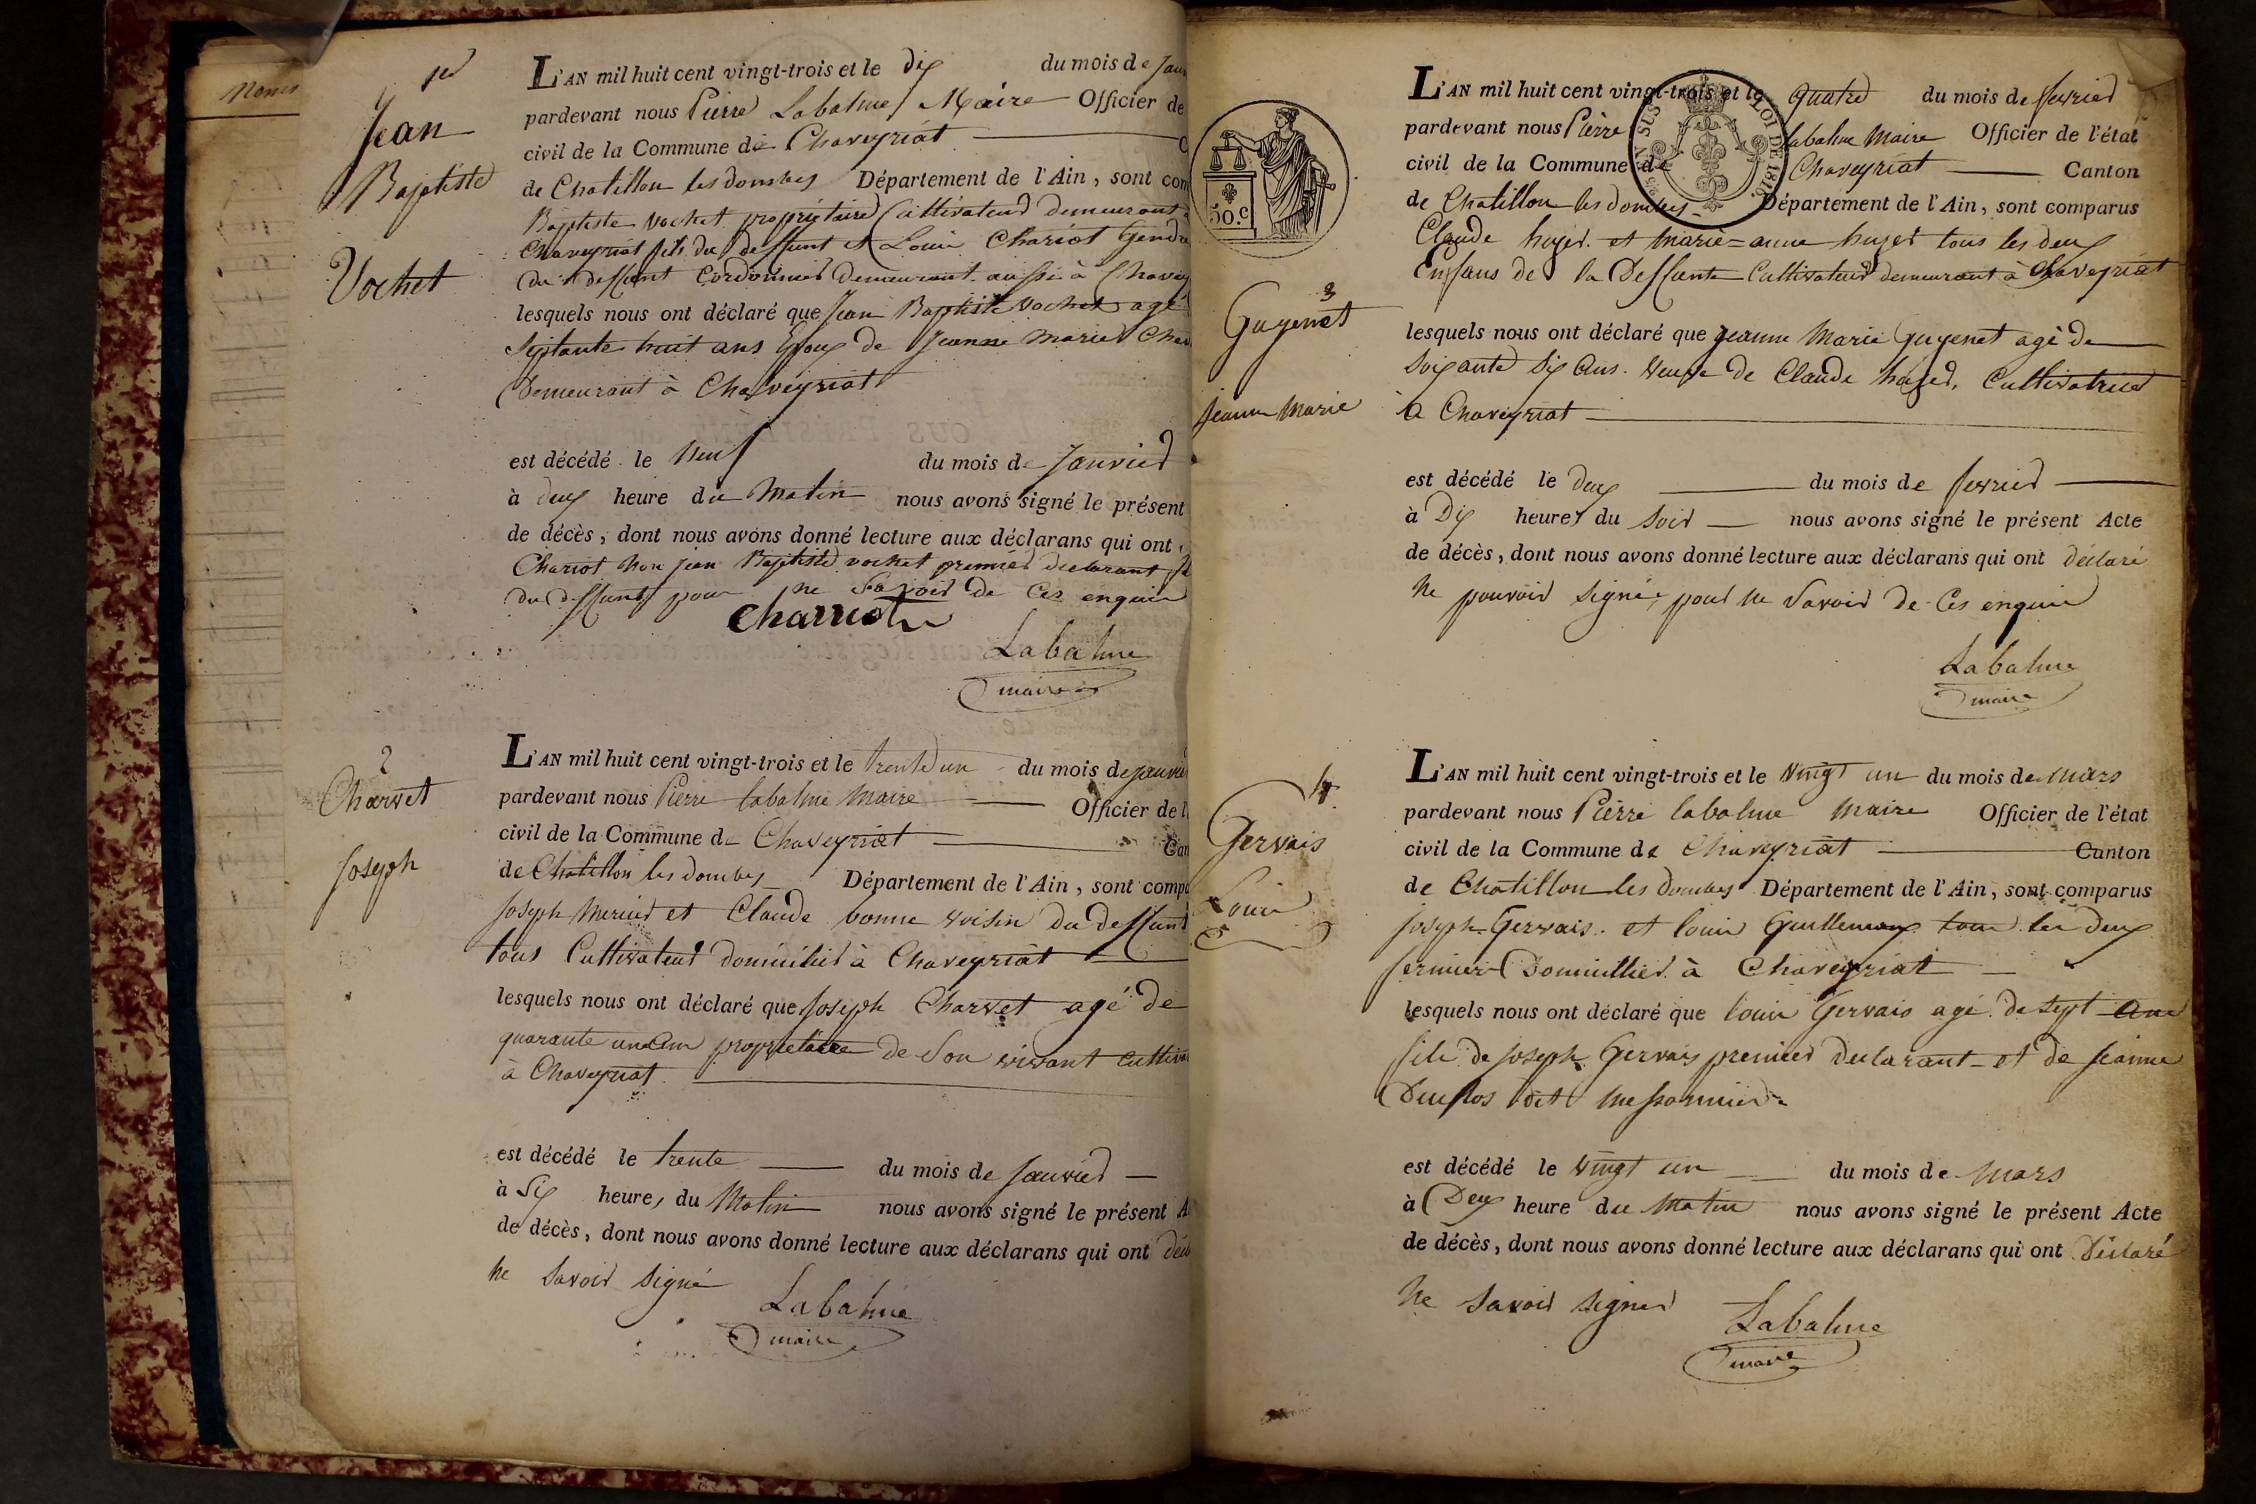 Noms
1er
Jean
Baptiste
Vochet
L'AN mil huit cent vingt-trois et le dix du mois de Janv
pardevant nous Pierre Labalme Maire Officier de
civil de la Commune de Chaveyriat C
de Chatillon les dombes Département de l'Ain, sont com
Baptiste Vochet propriétaire Cultivateur demeurant
Chaveyriat fils du deffunt et Louis Chariot Gendre
du deffunt Cordonnier Demeurant aussi à Chavey
lesquels nous ont déclaré que Jean Baptiste Vochet agé
Septante huit ans Epoux de Jeanne Marie Cha
Demeurant à Chaveyriat
est décédé le neuf du mois de Janvier
à deux heure du Matin nous avons signé le présent
de décès, dont nous avons donné lecture aux déclarans qui ont
Chariot Non jean Baptiste vochet premier declarant
du deffunt pour ne Savoir de Ces enquis
Charriot
Labalme
maire
2
Charvet
Joseph
L'AN mil huit cent vingt-trois et le trente un du mois de janvie
pardevant nous Pierre labalme Maire Officier de l
civil de la Commune de Chaveyriat Can
de Chatillon les dombes Département de l'Ain, sont compa
Joseph Mercier et Claude bonne voisin du deffunt
tous Cultivateur domicilié à Chaveyriat
lesquels nous ont déclaré que Joseph Charvet agé de
quarante un an propriétaire de Son vivant cultiva
à Chaveyriat
est décédé le trente du mois de Janvier
à Six heures du Matin nous avons signé le présent A
de décès, dont nous avons donné lecture aux déclarans qui ont décla
ne Savoir signé
Labalme
maire
50.c
EN SUS
LOI DE 1816
3
Guyenet
Jeanne Marie
L'AN mil huit cent vingt-trois et le quatre du mois de fevrier
pardevant nous Pierre labalme Maire Officier de l'état
civil de la Commune de Chaveyriat Canton
de Chatillon les dombes Département de l'Ain, sont comparus
Claude hujer et Marie=anne hujer tous les deux
Enfans de la Deffunte Cultivateur demeurant à Chaveyriat
lesquels nous ont déclaré que Jeanne Marie Guyenet agé de
Soixante Six Ans. Veuve de Claude hujer, Cultivatrice
à Chaveyriat
est décédé le deux du mois de fevrier
à Dix heures du Soir nous avons signé le présent Acte
de décès, dont nous avons donné lecture aux déclarans qui ont déclaré
ne pouvoir signé, pour ne Savoir de Ces enquis
Labalme
maire
4
Gervais
Louis
L'AN mil huit cent vingt-trois et le Vingt un du mois de Mars
pardevant nous Pierre labalme Maire Officier de l'état
civil de la Commune de Chaveyriat Canton
de Chatillon les dombes Département de l'Ain, sont comparus
Joseph Gervais et louis Guillemaux tous les deux
fermier Domicillier à Chaveyriat
lesquels nous ont déclaré que louis Gervais agé de Sept Ans
fils de Joseph Gervais premier declarant et de Jeanne
Duclos dit Messonnier
est décédé le Vingt un du mois de Mars
à Deux heure du Matin nous avons signé le présent Acte
de décès, dont nous avons donné lecture aux déclarans qui ont Déclaré
Ne Savoir Signer
Labalme
maire